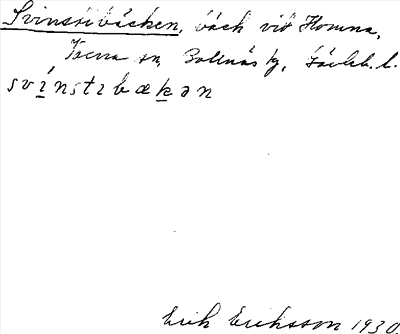 Svinstibäcken, bäck vid Homna,
Voxna sn, Bollnäs kg, Gävleb. l.
svínstɩbækən
Erik Eriksson 1930.